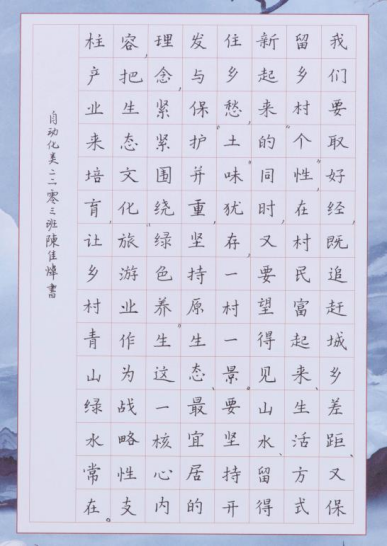 我们要取好经,既追赶城乡差距,又保
留乡村个性,在村民富起来、生活方式
新起来的同时,又要望得见山水、留得
住乡愁,土味犹存,一村一景。要坚持开
发与保护并重,坚持原生态、最宜居的
理念,紧紧围绕绿色养生这一核心内
容,把生态文化旅游业作为战略性支
柱产业来培育,让乡村青山绿水常在。
自动化类二二零三班陳佳書